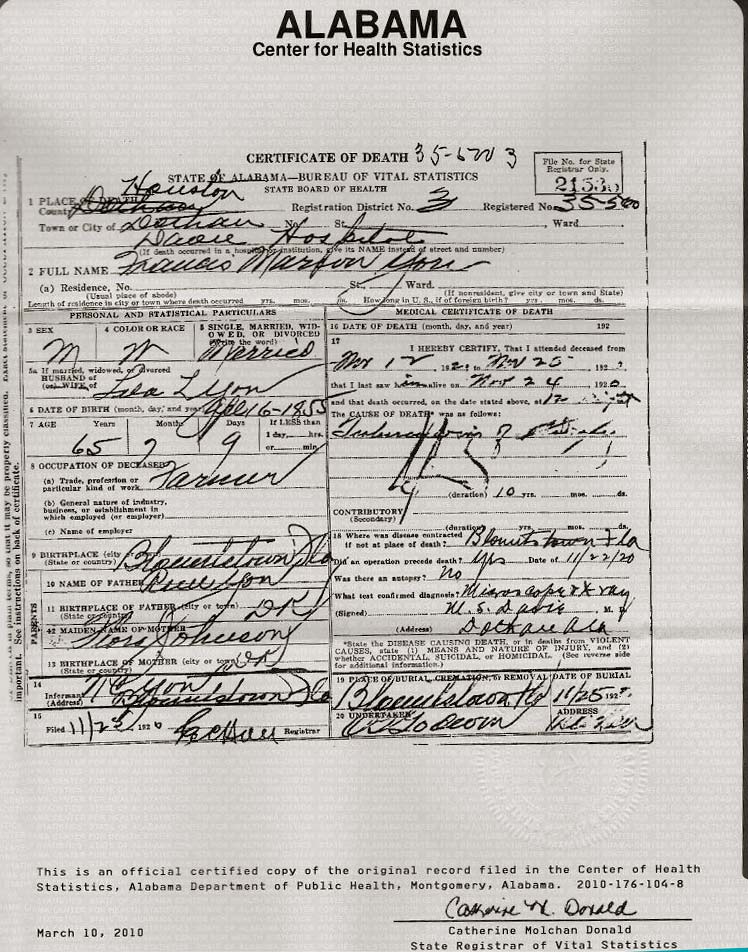 ALABAMA
Center for Health Statistics
CERTIFICATE OF DEATH
File No. for State
Registrar Only.
STATE OF ALABAMA—BUREAU OF VITAL STATISTICS
STATE BOARD OF HEALTH
Houston
1 PLACE OF DEATH
County
Registration District No. 3 Registered No. 35-560
Town or City of Dothan No. St. Ward
Hospital
(If death occurred in a hospital or institution, give its NAME instead of street and number)
2 FULL NAME Francis Marion Yon
(a) Residence, No. St. Ward.
(Usual place of abode) (If nonresident, give city or town and State)
Length of residence in city or town where death occurred yrs. mos. ds. How long in U. S., if of foreign birth? yrs. mos. ds.
PERSONAL AND STATISTICAL PARTICULARS
MEDICAL CERTIFICATE OF DEATH
3 SEX
M
4 COLOR OR RACE
W
5 SINGLE, MARRIED, WIDOWED, OR DIVORCED
(write the word)
Married
5a If married, widowed, or divorced
HUSBAND of
(or) WIFE of
Yon
6 DATE OF BIRTH (month, day, and year) Apl 16-1855
7 AGE Years Months Days If LESS than
1 day, hrs.
or min.
65 7 9
8 OCCUPATION OF DECEASED
(a) Trade, profession or
particular kind of work Farmer
(b) General nature of industry,
business, or establishment in
which employed (or employer)
(c) Name of employer
9 BIRTHPLACE (city or town) Blountstown Fla
(State or country)
10 NAME OF FATHER Yon
PARENTS
11 BIRTHPLACE OF FATHER (city or town) DK
(State or country)
12 MAIDEN NAME OF MOTHER
Johnson
13 BIRTHPLACE OF MOTHER (city or town) DK
(State or country)
14
Informant Yon
(Address) Blountstown Fla
15
Filed 11/2 1920 Registrar
16 DATE OF DEATH (month, day, and year) 192
17
I HEREBY CERTIFY, That I attended deceased from
Nov 12 192 to Nov 25 192
that I last saw him alive on Nov 24 1920
and that death occurred, on the date stated above, at 12
The CAUSE OF DEATH* was as follows:
(duration) 10 yrs. mos. ds.
CONTRIBUTORY
(Secondary)
(duration) yrs. mos. ds.
18 Where was disease contracted
if not at place of death? Blountstown Fla
Did an operation precede death? yes Date of 11/22/20
Was there an autopsy? No
What test confirmed diagnosis? Microscope & X ray
(Signed) M. S. Davie M. D.
(Address) Dothan Ala
*State the DISEASE CAUSING DEATH, or in deaths from VIOLENT
CAUSES, state (1) MEANS AND NATURE OF INJURY, and (2)
whether ACCIDENTAL, SUICIDAL, or HOMICIDAL. (See reverse side
for additional information.)
19 PLACE OF BURIAL, CREMATION, or REMOVAL DATE OF BURIAL
Blountstown 11/25 192
20 UNDERTAKER ADDRESS
important. See instructions on back of certificate.
This is an official certified copy of the original record filed in the Center of Health
Statistics, Alabama Department of Public Health, Montgomery, Alabama. 2010-176-104-8
Catherine M. Donald
March 10, 2010
Catherine Molchan Donald
State Registrar of Vital Statistics